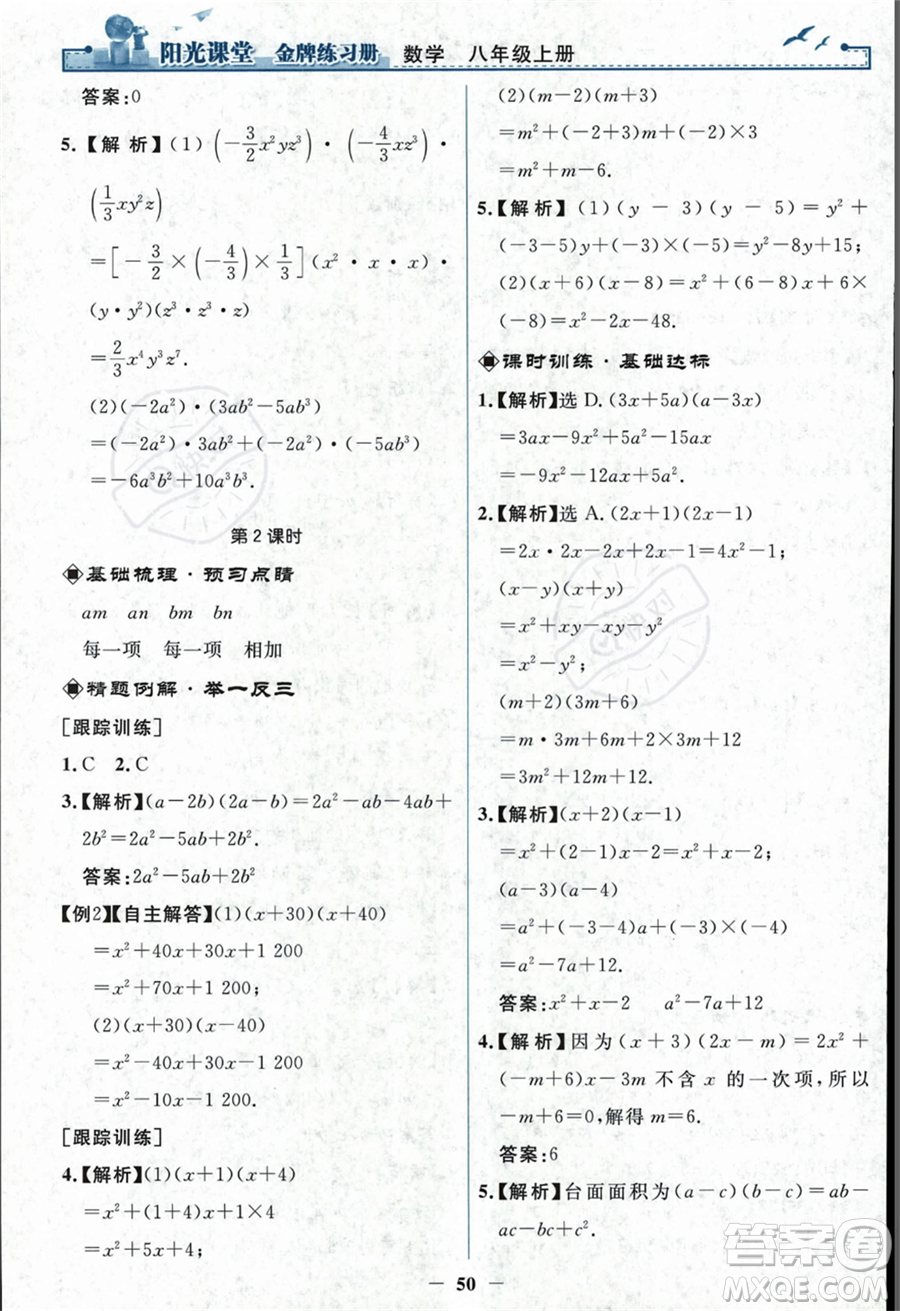 阳光课堂 金牌练习册 数学 八年级上册
答案:0
5.【解析】(1)(-3/2x²yz³)·(-4/3xz³)·
(1/3xy²z)
=[-3/2×(-4/3)×1/3](x²·x·x)
(y·y²)(z³·z³·z)
=2/3x⁴y³z⁷.
(2)(-2a²)·(3ab²-5ab³)
=(-2a²)·(3ab²)+(-2a²)·(-5ab³)
=-6a³b²+10a³b³.
第2课时
基础梳理·预习点睛
am an bm bn
每一项 每一项 相加
精题例解·举一反三
[跟踪训练]
1.C 2.C
3.【解析】(a-2b)(2a-b)=2a²-ab-4ab+
2b²=2a²-5ab+2b².
答案:2a²-5ab+2b²
【例2】【自主解答】(1)(x+30)(x+40)
=x²+40x+30x+1 200
=x²+70x+1 200;
(2)(x-30)(x-40)
=x²-40x-30x+1 200
=x²-70x+1 200.
[跟踪训练]
4.【解析】(1)(x+1)(x+4)
=x²+(1+4)x+1×4
=x²+5x+4;
(2)(m-2)(m+3)
=m²+(-2+3)m+(-2)×3
=m²+m-6.
5.【解析】(1)(y-3)(y-5)=y²+
(-3-5)y+(-3)×(-5)=y²-8y+15;
(2)(x+6)(x-8)=x²+(6-8)x+6×
(-8)=x²-2x-48.
课时训练·基础达标
1.【解析】选D.(3x+5a)(a-3x)
=3ax-9x²+5a²-15ax
=-9x²-12ax+5a².
2.【解析】选A.(2x+1)(2x-1)
=2x·2x-2x+2x-1=4x²-1;
(x-y)(x+y)
=x²+xy-xy-y²
=x²-y²;
(m+2)(3m+6)
=m·3m+6m+2×3m+12
=3m²+12m+12.
3.【解析】(x+2)(x-1)
=x²+(2-1)x-2=x²+x-2;
(a-3)(a-4)
=a²+(-3-4)a+(-3)×(-4)
=a²-7a+12.
答案:x²+x-2 a²-7a+12
4.【解析】因为(x+3)(2x-m)=2x²+
(-m+6)x-3m不含x的一次项,所以
-m+6=0,解得m=6.
答案:6
5.【解析】台面面积为(a-c)(b-c)=ab-
ac-bc+c².
50
答案圈
MXQE.COM